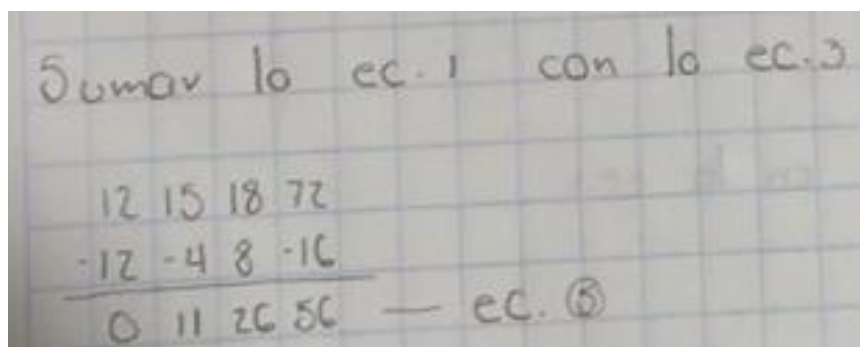 Sumar la ec. 1 con la ec. 3
12 15 18 72
-12 -4 8 -16
0 11 26 56 — ec. ⑤